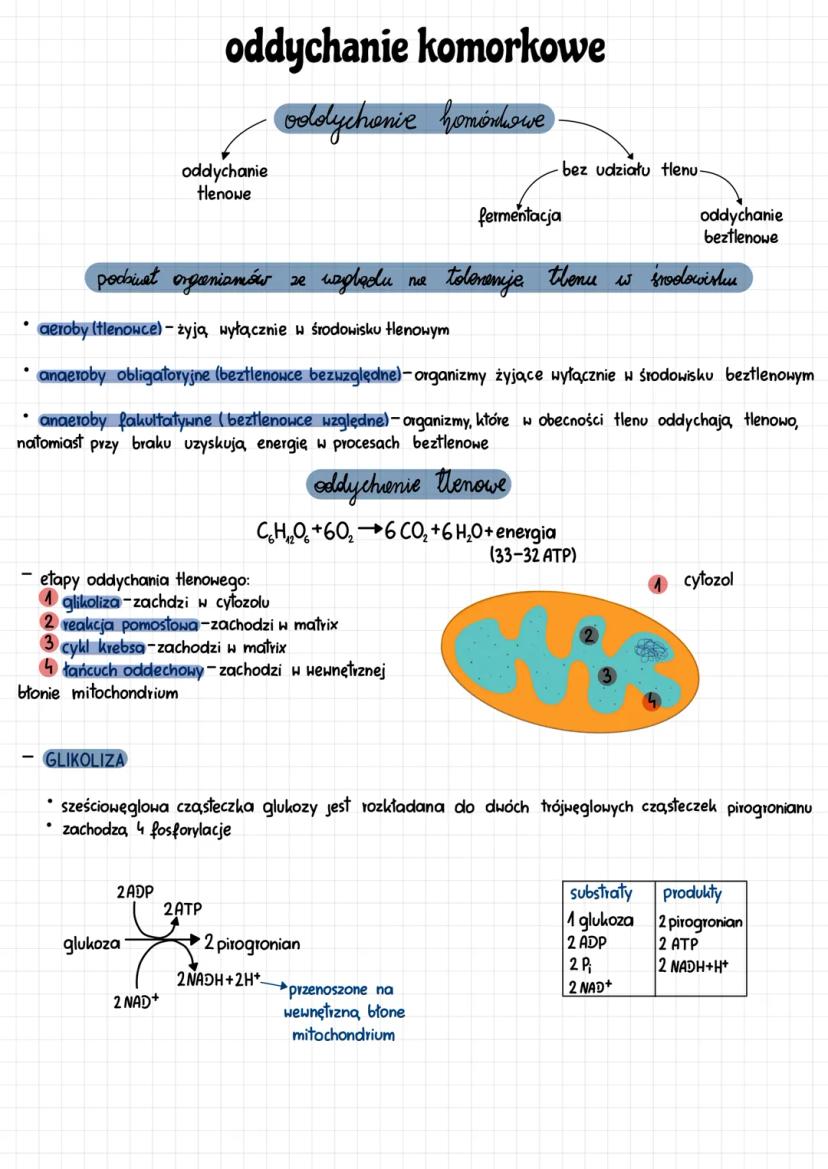 oddychanie komorkowe
oddychanie komórkowe
oddychanie
tlenowe
bez udziału tlenu
fermentacja
oddychanie
beztlenowe
podział organizmów ze względu na tolerancję tlenu w środowisku
• aeroby (tlenowce) – żyją wyłącznie w środowisku tlenowym
• anaeroby obligatoryjne (beztlenowce bezwzględne) – organizmy żyjące wyłącznie w środowisku beztlenowym
• anaeroby fakultatywne (beztlenowce względne) – organizmy, które w obecności tlenu oddychają tlenowo,
natomiast przy braku uzyskują energię w procesach beztlenowe
oddychanie tlenowe
C₆H₁₂O₆ + 6O₂ → 6 CO₂ + 6 H₂O + energia
(33-32 ATP)
– etapy oddychania tlenowego:
1 glikoliza – zachdzi w cytozolu
2 reakcja pomostowa – zachodzi w matrix
3 cykl krebsa – zachodzi w matrix
4 łańcuch oddechowy – zachodzi w wewnętrznej
błonie mitochondrium
1 cytozol
2
3
4
– GLIKOLIZA
• sześciowęglowa cząsteczka glukozy jest rozkładana do dwóch trójwęglowych cząsteczek pirogronianu
• zachodzą 4 fosforylacje
2 ADP
2 ATP
glukoza → 2 pirogronian
2 NADH + 2H⁺
2 NAD⁺
przenoszone na
wewnętrzną błonę
mitochondrium
substraty produkty
1 glukoza 2 pirogronian
2 ADP 2 ATP
2 Pᵢ 2 NADH+H⁺
2 NAD⁺